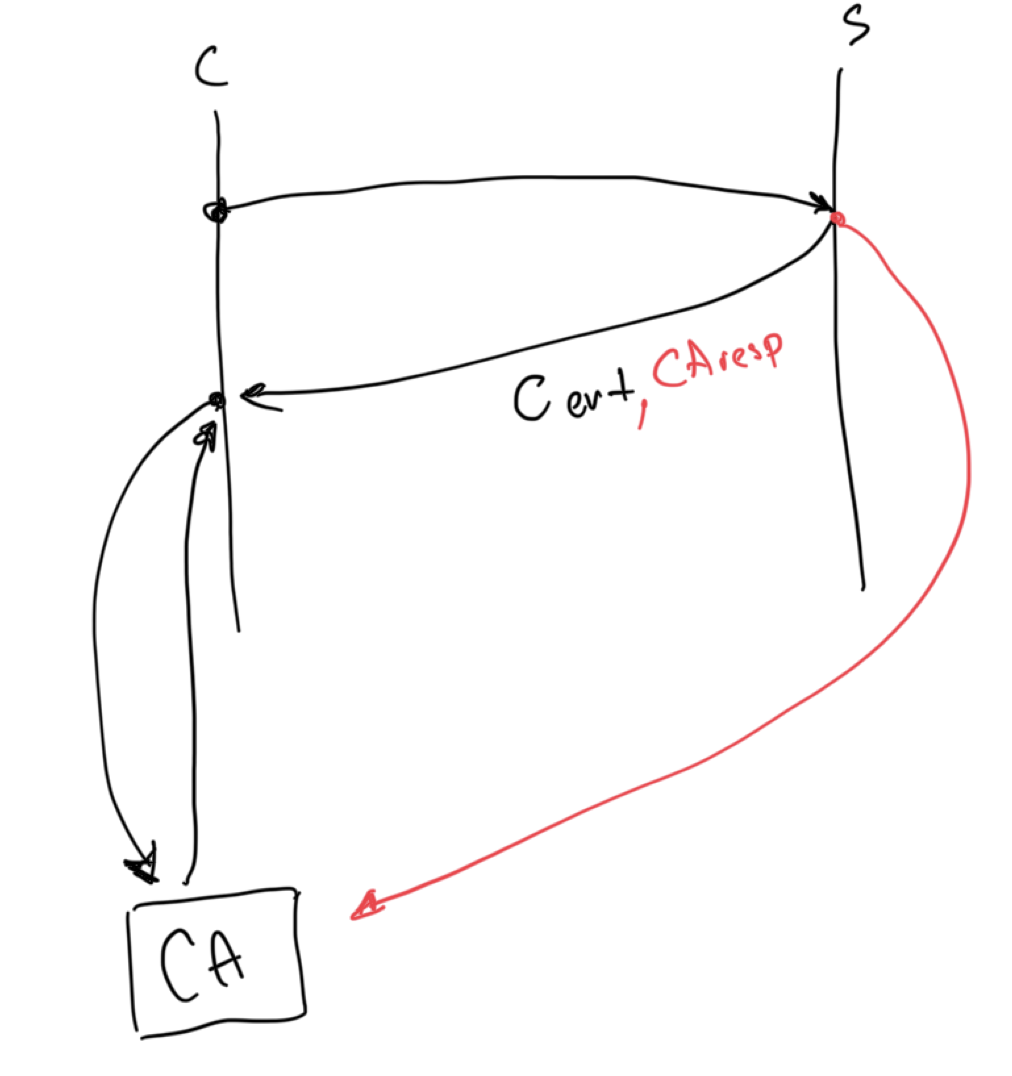 C
S
Cert, CAresp
CA